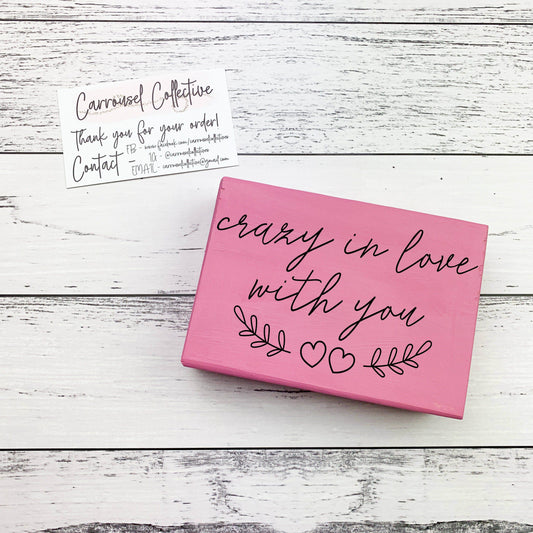 Carrousel Collective
Thank you for your order!
Contact - FB - www.facebook.com/carrouselcollective
IG - @carrouselcollective
EMAIL - carrouselcollective@gmail.com
crazy in love
with you